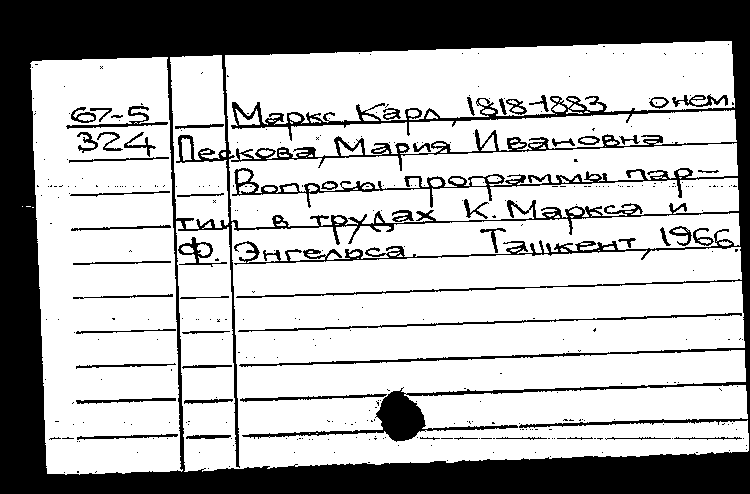 67-5 Маркс, Карл, 1818-1883, о нем.
324 Пескова, Мария Ивановна.
Вопросы программы пар-
тии в трудах К. Маркса и
Ф. Энгельса. Ташкент, 1966.